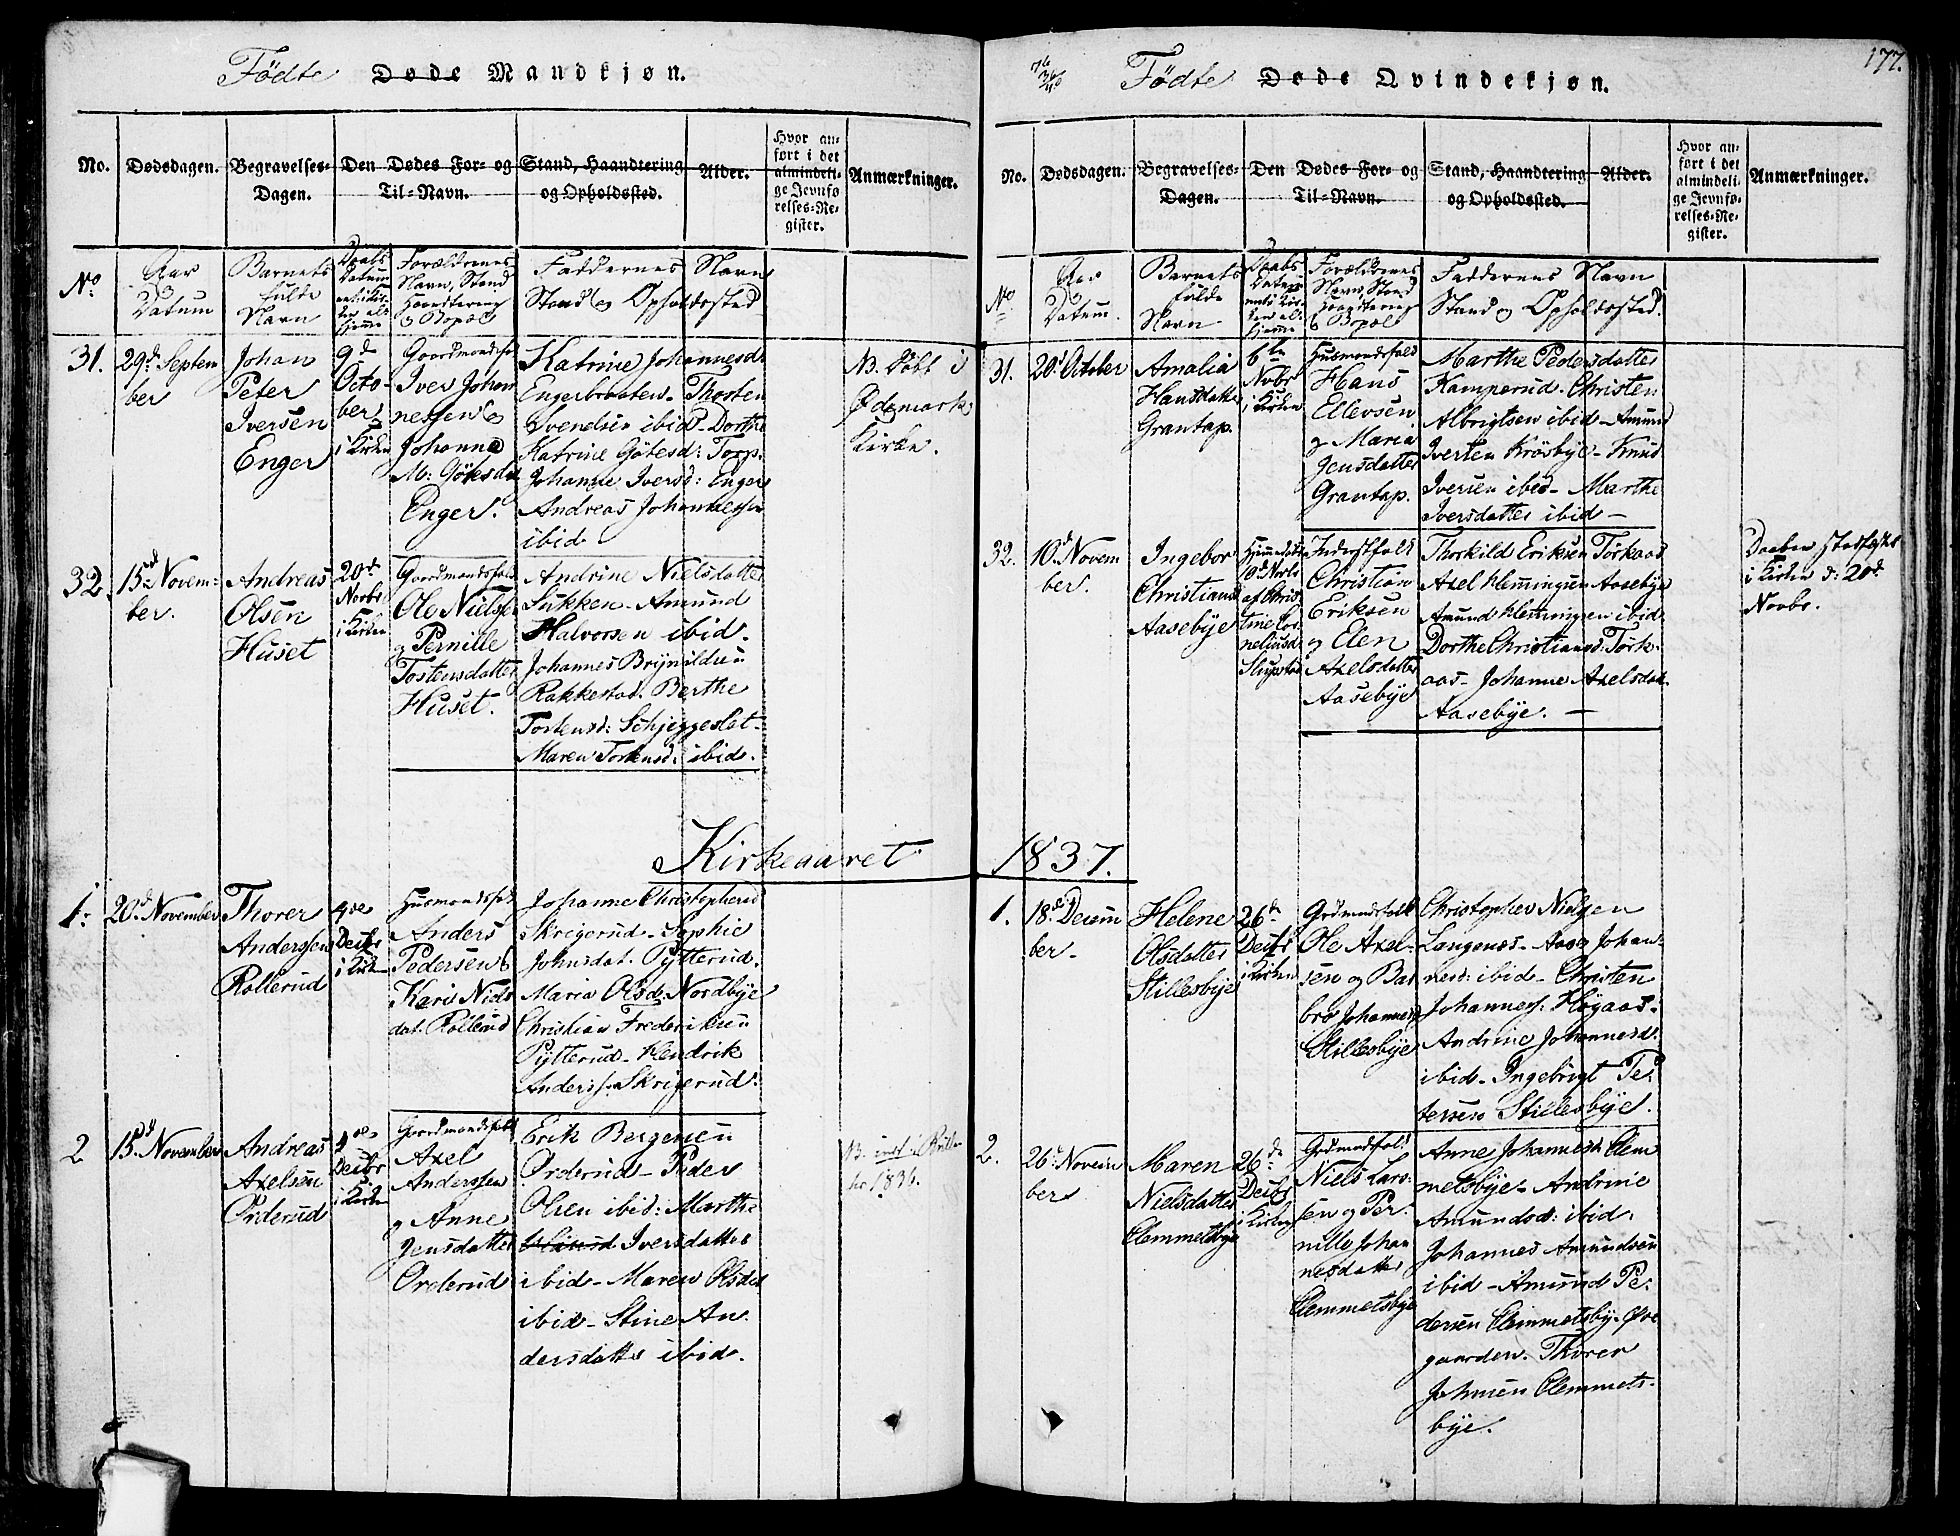 Fødte Døde Mandkjøn.
No. Dødsdagen. Begravelses-Dagen. Den Dødes For- og Til-Navn. Stand, Haandtering og Opholdssted. Alder. Hvor anført i det almindelige Jevnførelses-Register. Anmærkninger.
No Aar & Datum Barnets fulde Navn Daabs Datum Forældrenes Navn, Stand Haandtering & Bopæl Faddernes Navn Stand & Opholdssted
31. 29d Septem
ber
Johan
Peter
Iversen
Enger
9d
Octo
ber
i Kirken
Gaardmandsfolk
Iver Johan
nessen &
Johanne
M: Götesdat
Enger.
Katrine Johannesd:
Engerbraaten - Thosten
Svendsen ibid - Dorthe
Katrine Götesd: Torp:
Johanne Iversd: Enger
Andreas Johannessen
ibid
NB. Döbt i
Ødemarks
Kirke.
32. 15d Novem-
ber.
Andreas
Olsen
Huset
20d
Novbr
i Kirken
Gaardmandsfolk
Ole Nielsen
& Pernille
Tostensdatter
Huset.
Andrine Nielsdatter
Lukken - Amund
Halvorsen ibid.
Johannes Brynildsen
Rakkestad. Berthe
Tostensd: Schjeggeslet -
Maren Tostensd: ibid.
Kirkeaaret
1. 20d November
Thorer
Anderssen
Rollerud
4de
Decbr
i Kirken
Husmandsfolk
Anders
Pedersen &
Kari Niels
dat. Rollerud
Johanne Christophersd
Skrigerud - Sophie
Johnsdat. Pytterud.
Maria Olsd: Nordbye
Christian Frederiksen
Pytterud - Hendrik
Anderss. Skrigerud.
2 15d November
Andreas
Axelsen
Orderud
4de
Decbr
i Kirken
Gaardmandsfolk
Axel
Anderssen
& Anne
Jensdatter
Orderud
Erik Bergersen
Orderud - Peder
Olsen ibid: Marthe
Iversdatter
ibid - Maren Olsdat
ibid - Stine An
dersdatter ibid.
1836.
177.
Fødte Døde Qvindekjøn.
No. Dødsdagen. Begravelses-Dagen. Den Dødes For- og Til-Navn. Stand, Haandtering og Opholdssted. Alder. Hvor anført i det almindelige Jevnførelses-Register. Anmærkninger.
No Aar & Datum. Barnets fulde Navn Daabs Datum Forældrenes Navn, Stand Haandtering & Bopæl Faddernes Navn Stand & Opholdssted.
31. 20d October
Amalia
Hansdatter
Grantap.
6te
Novbr
i Kirken
Husmandsfolk
Hans
Ellevsen
& Maria
Jensdatter
Grantap.
Marthe Pedersdatter
Kamperud - Christen
Albrigtsen ibid - Amund
Iversen Krösbye - Knud
Iversen ibid - Marthe
Iversdatter ibid -
32. 10d Novem
ber.
Ingebor
Christiansd
Aasebye
Hjemmedöbt
10d Novbr
af Chris
tine Cor
neliusd
Inderstfolk
Christian
Eriksen
& Elen
Axelsdatter
Aasebye
Thorkild Eriksen Torkaas
Axel Flemmingsen Aasebye
Amund Flemmingsen ibid
Dorthe Christiansd: Tork-
aas - Johanne Axelsdat.
Aasebye. -
Daaben stadfæstet
i Kirken d: 20d
Novbr.
1837.
1. 18d Decem
ber -
Helene
Olsdatter
Stillesbye
26d
Decbr
i Kirken
Grdmandsfolk
Ole Axel-
sen & Bar
bro Johannesd
Stillesbye
Christopher Nielsen
Langenes - Aase Johan-
nesd: ibid - Christen
Johanness: Høgaas -
Andrine Johannesd.
ibid - Ingebrigt Pe-
tersen Stillesbye.
2. 26d Novem
ber
Maren
Nielsdatter
Clemmetsbye
26d
Decbr
i Kirken
Grdmandsfolk
Niels Lars-
sen & Per-
nille Johan
nesdatter
Clemmetsbye
Anne Johannesd: Clem
metsbye - Andrine
Amundsd: ibid.
Johannes Amundsen
ibid - Amund Pe-
dersen Clemmetsby - Øvre
gaarden. Thorer
Johnsen Clemmets-
bye.